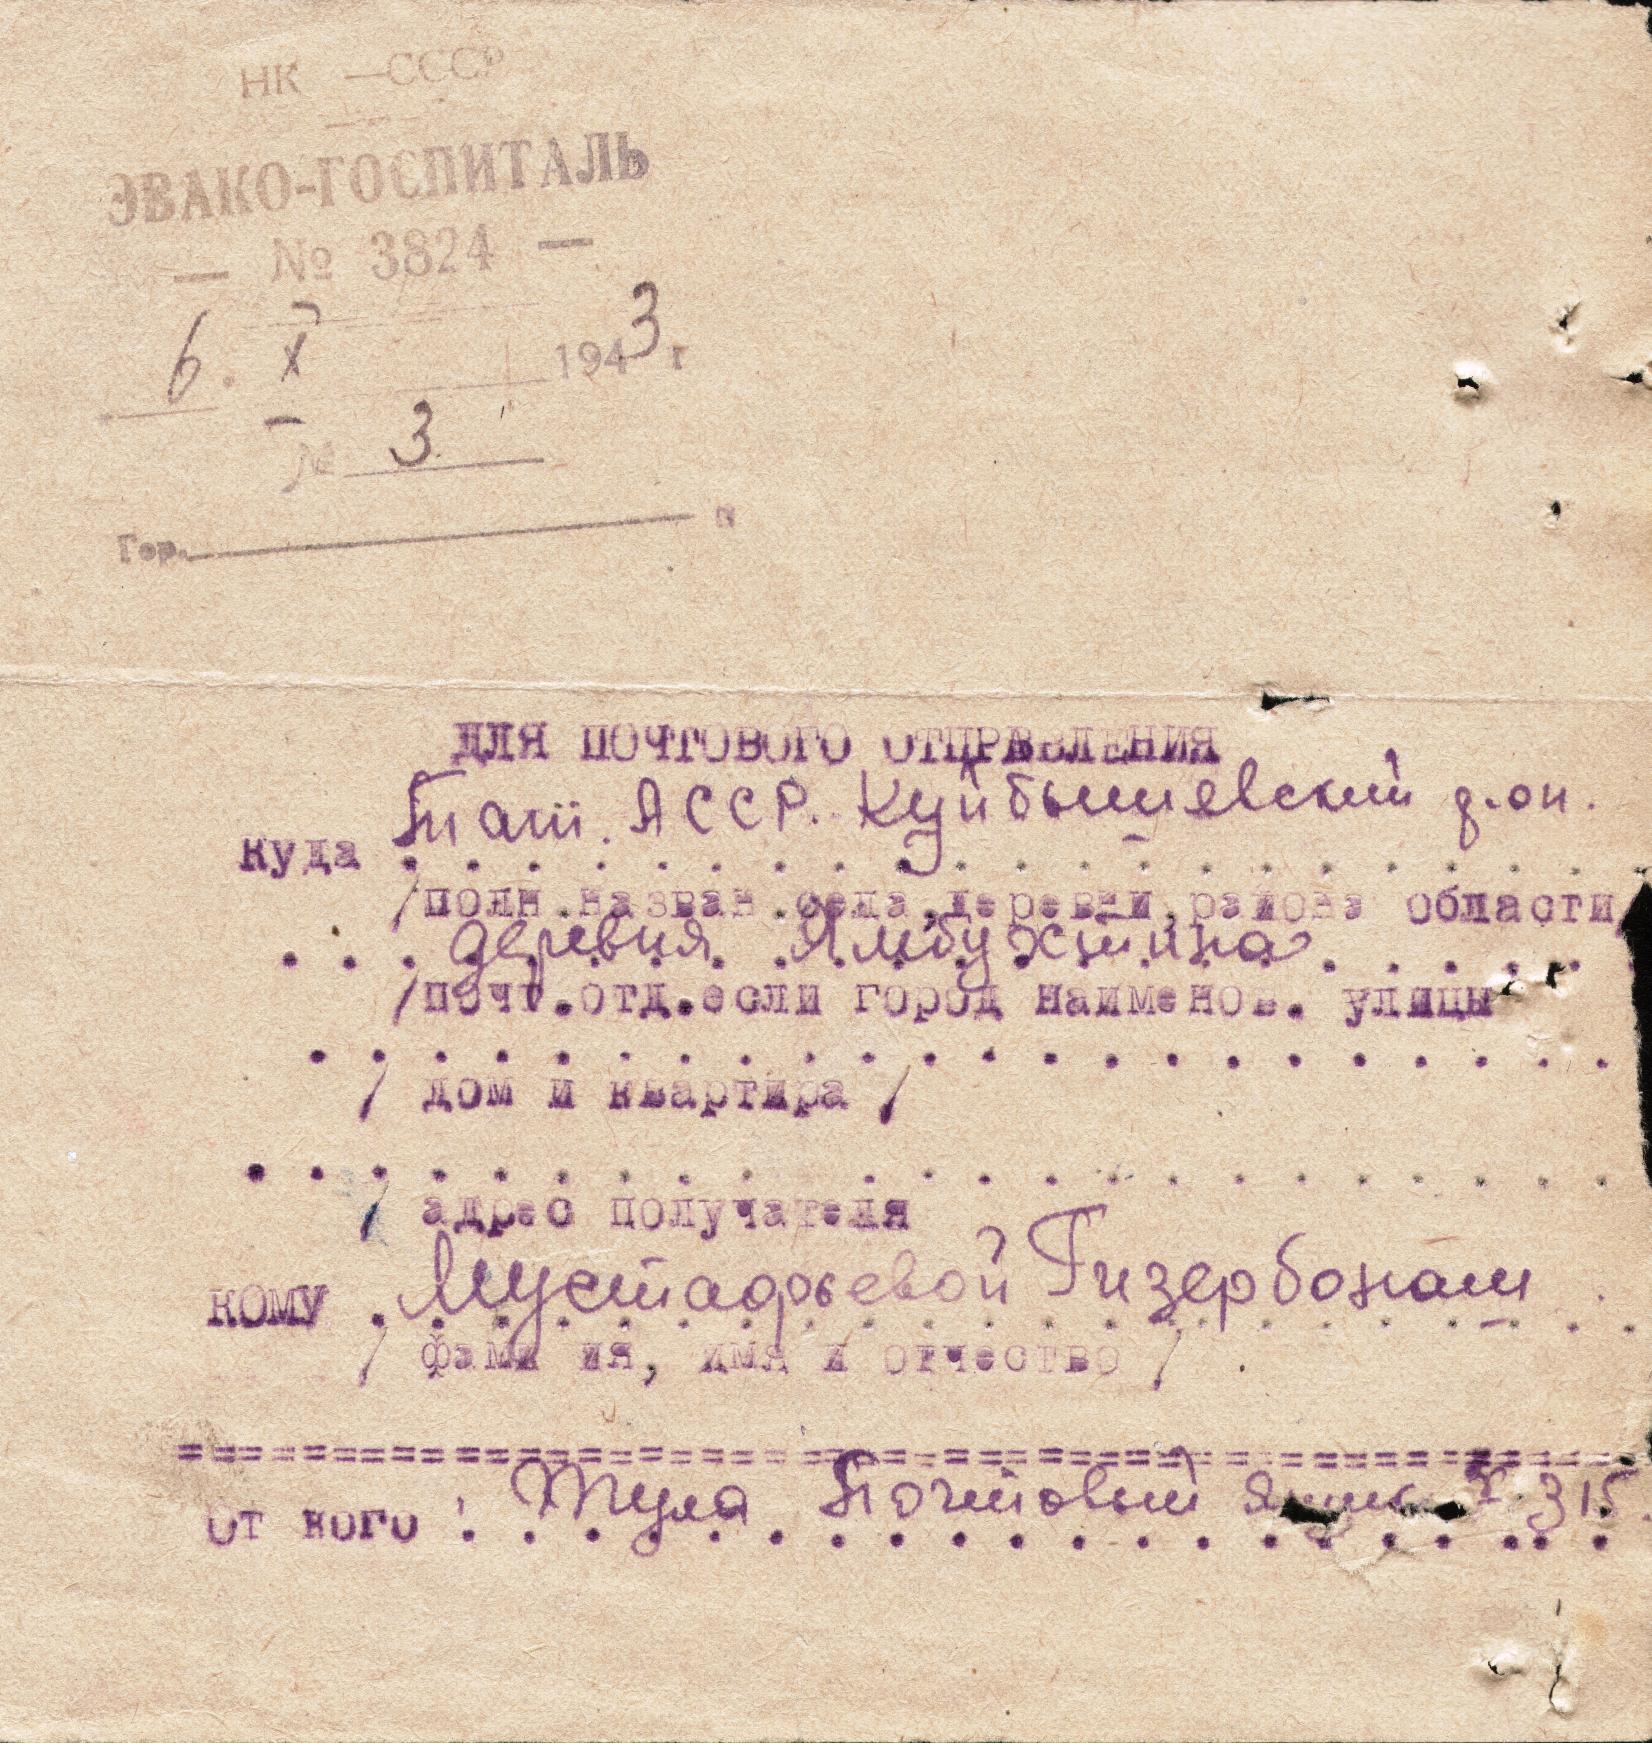 НК —СССР
ЭВАКО-ГОСПИТАЛЬ
— № 3824 —
6. X 1943 г
№ 3.
Гор.
ДЛЯ ПОЧТОВОГО ОТПРАВЛЕНИЯ
Тат. АССР. Куйбышевский р.он.
куда . . . . . . . . . . . . . . . . . . . .
/полн.назван.села,деревни,района области/
. . . деревня Ямбухтина . . . . .
/почт.отд.если город наименов. улицы
. . . . . . . . . . . . . . . . . . . . . .
/ дом и квартира /
. . . . . . . . . . . . . . . . . . . . . . .
/ адрес получателя
кому . Мустафьевой Гизербонат .
/ фами ия, имя и отчество /
================================
от кого : Тула Почтовый ящик № 315.